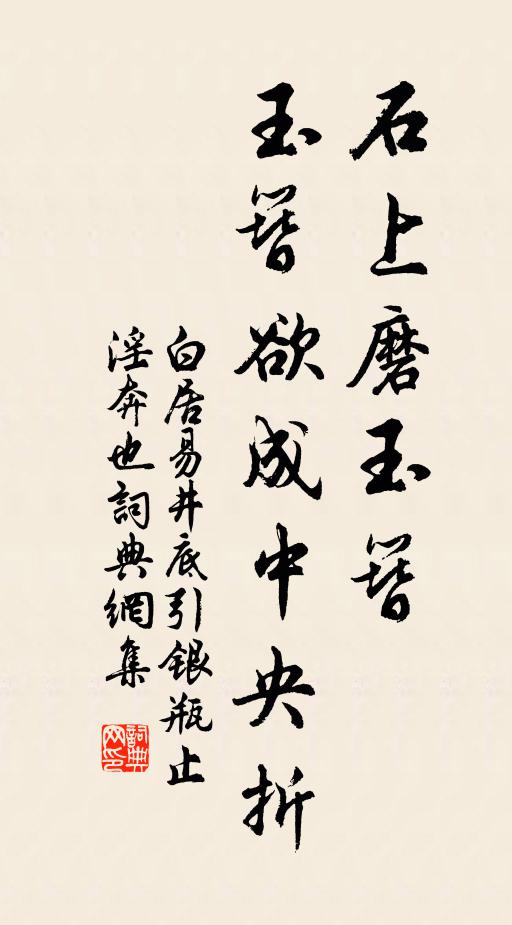 石上磨玉簪
玉簪欲成中央折
白居易井底引銀瓶止
淫奔也詞典網集
詞典网印